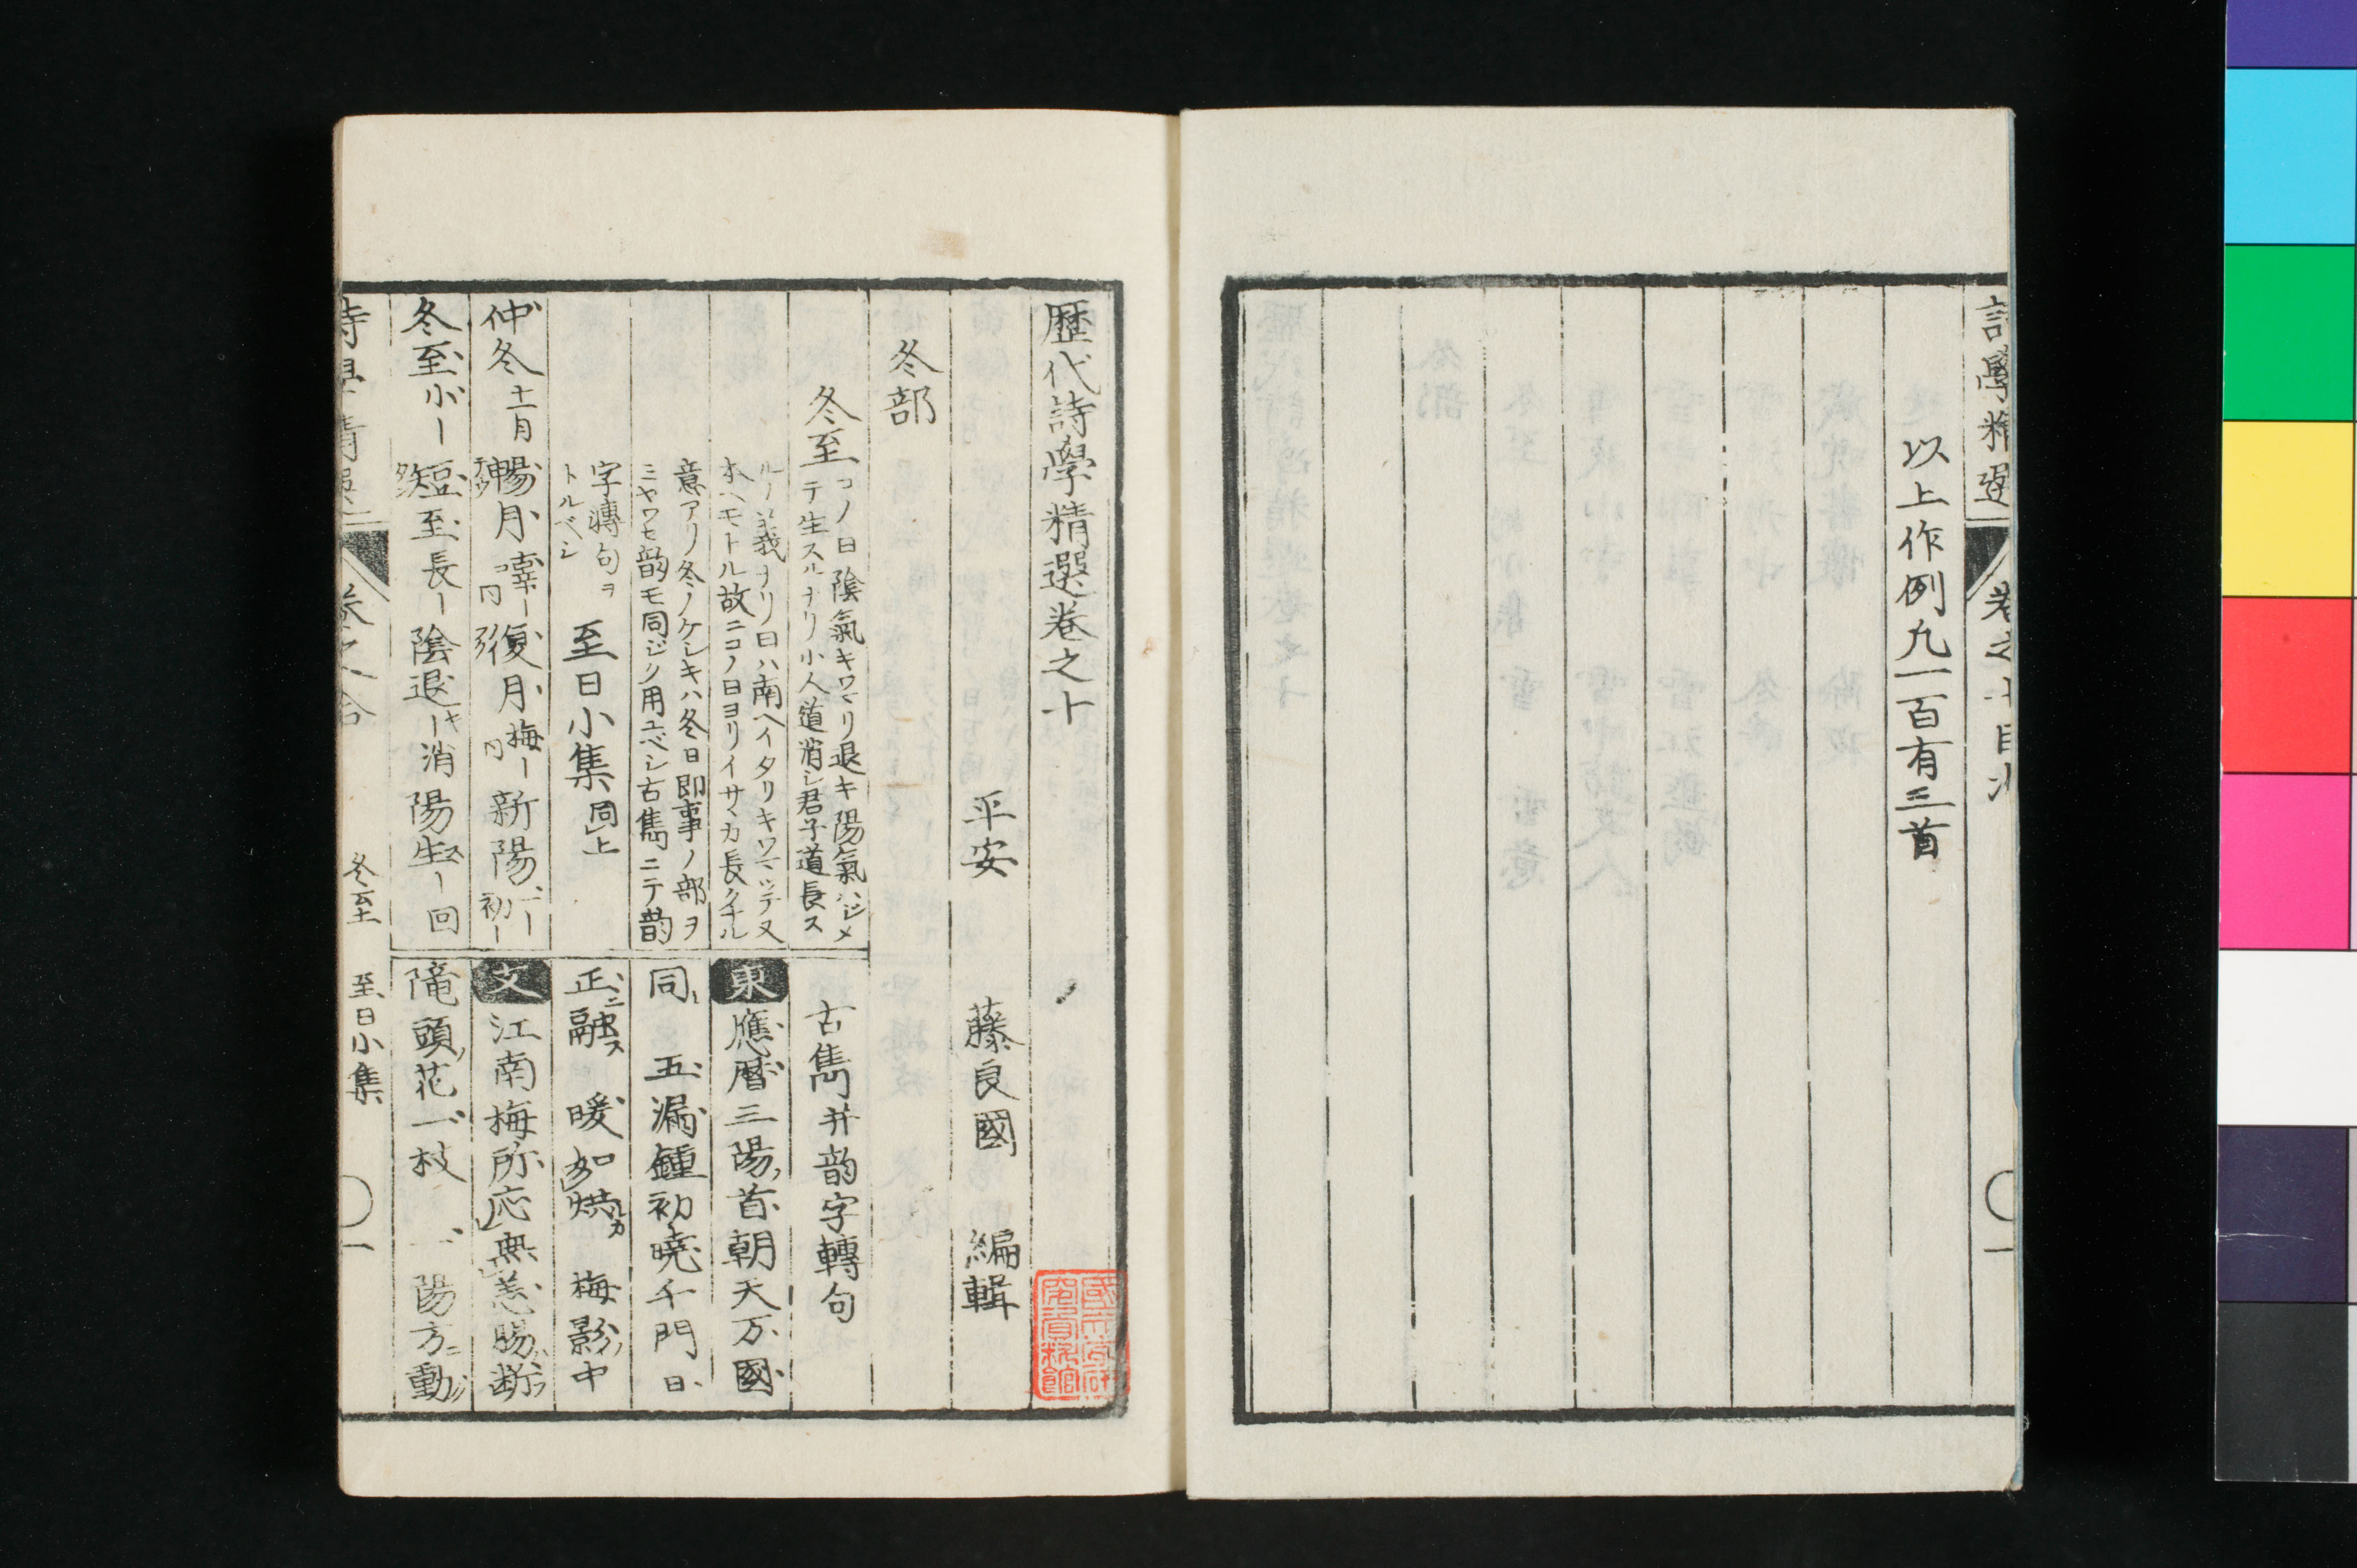 以上作例九一百有三首
歴代詩學精選巻之十
平安 藤良國 編輯
冬部
冬至 コノ日陰氣キワマリ退キ陽氣ハジメ
テ生スルナリ小人道消シ君子道長ス
ルノ義ナリ日ハ南ヘイタリキワマツテ又
ホヘモトル故ニコノ日ヨリイサヽカ長クナル
意アリ冬ノケシキハ冬日即事ノ部ヲ
ミヤワセ韵モ同ジク用ユベシ古雋ニテ韵
字轉句ヲ
トルベシ
至日小集 同上
仲冬 十一月 暢月 辜月 復月 梅月 新陽 初
冬至 小 短至 長 陰退 消 陽生 回
古雋并韵字轉句
東 應暦三陽首朝天万國
同 五漏鍾初曉千門日
正融 暖如烘 梅影中
文 江南梅所応無恙腸断
隴頭花一枝 一陽方動
冬至 至日小集
一